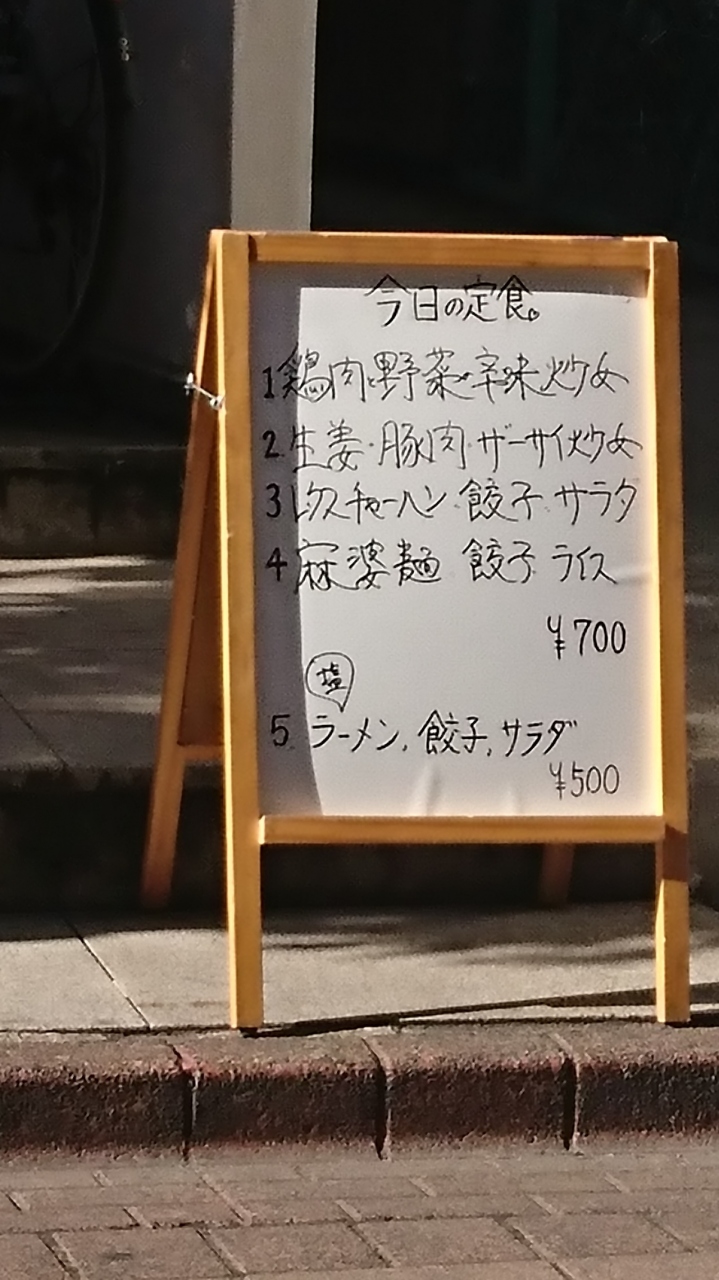 今日の定食。
1鶏肉と野菜の辛味炒め
2.生姜・豚肉・ザーサイ炒め
3レタスチャーハン 餃子 サラダ
4麻婆麺 餃子 ライス
¥700
塩
5.ラーメン,餃子,サラダ
¥500